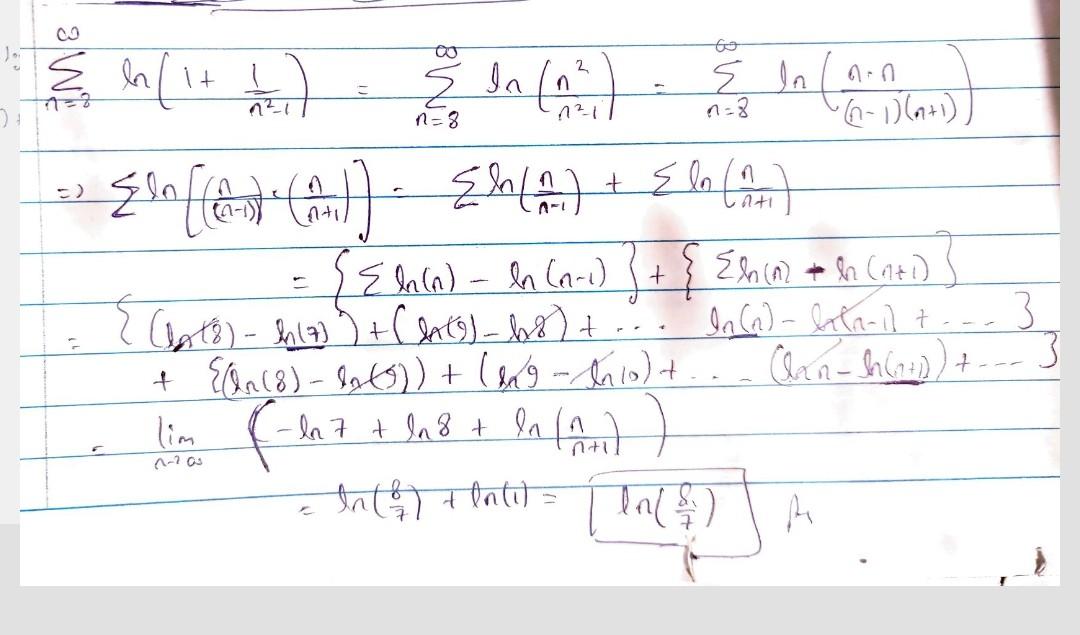 ∞ ∑ n=8 ln(1+ 1/(n²-1)) = ∞ ∑ n=8 ln(n²/(n²-1)) = ∞ ∑ n=8 ln(n·n/((n-1)(n+1)))
=> ∑ ln[(n/(n-1))·(n/(n+1))] = ∑ ln(n/(n-1)) + ∑ ln(n/(n+1))
= {∑ ln(n) - ln(n-1)} + {∑ ln(n) - ln(n+1)}
= {(ln(8) - ln(7)) + (ln(9) - ln8) + ... ln(n) - ln(n-1) + ....}
+ {(ln(8) - ln(9)) + (ln9 - ln10) + ... (ln n - ln(n+1)) + ....}
= lim n→∞ (-ln7 + ln8 + ln(n/(n+1)))
= ln(8/7) + ln(1) = ln(8/7)